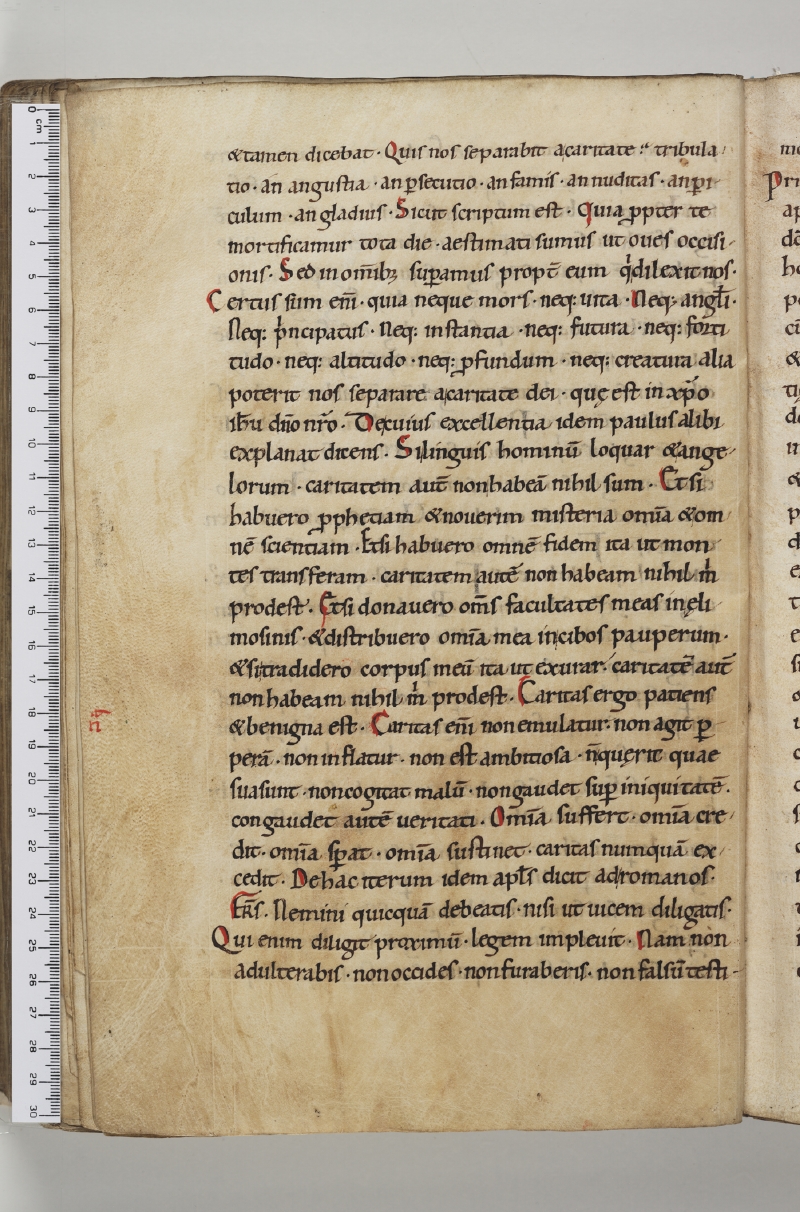 &tamen dicebat· Quis nos separabit acaritate? tribula
tio· an angustia· an ꝑsecutio· an famis· an nuditas· anpi
culum· an gladius· Sicut scriptum est· Quia ꝓpter te
mortificamur tota die· aestimati sumus ut oues occisi
onis· Sed in omĩbꝫ suꝑamus propt̃ eum q̇dilexit nos·
Certus sum em̃· quia neque mors· neq: uita· Neq: angl̃i·
Neq: pͥncipatus· Neq: instantia· neq: futura· neq: forti
tudo· neq: altitudo· neq: ꝓfundum· neq: creatura alia
poterit nos separare acaritate dei· quę est in xp̃o
ih̃u dñο nr̃o· Decuius excellentia idem paulus alibi
explanat dicens· Silinguis hominũ loquar &ange
lorum· caritatem aut̃ nonhabeã nihil sum· Etsi
habuero ꝓphetiam &nouerim misteria omĩa &om
nẽ scientiam· Etsi habuero omnẽ fidem ita ut mon
tes transferam· caritatem autẽ non habeam nihil m̊
prodest· Etsi donauero om̃s facultates meas ineli
mosinis· &distribuero omĩa mea incibos pauperum·
&sitradidero corpus meũ ita ut exurar· caritatẽ aut̃
nonhabeam nihil m̊ prodest· Caritas ergo patiens
&benigna est· Caritas em̃ non emulatur· non agit ꝑ
perã· non inflatur· non est ambitiosa· ñquerit quae
suasunt· noncogitat malũ· nongaudet suꝑ iniquitatẽ·
congaudet autẽ ueritati· Omĩa suffert· omĩa cre
dit· omĩa sꝑat· omĩa sustinet· caritas numquã ex
cedit· Dehac iterum idem apl̃s dicit adromanos·
Fr̃s· Nemini quicquã debeatis· nisi ut uicem diligatis·
Qui enim diligit proximũ· legem impleuit· Nam non
adulterabis· non occides· nonfuraberis· non falsũ testi